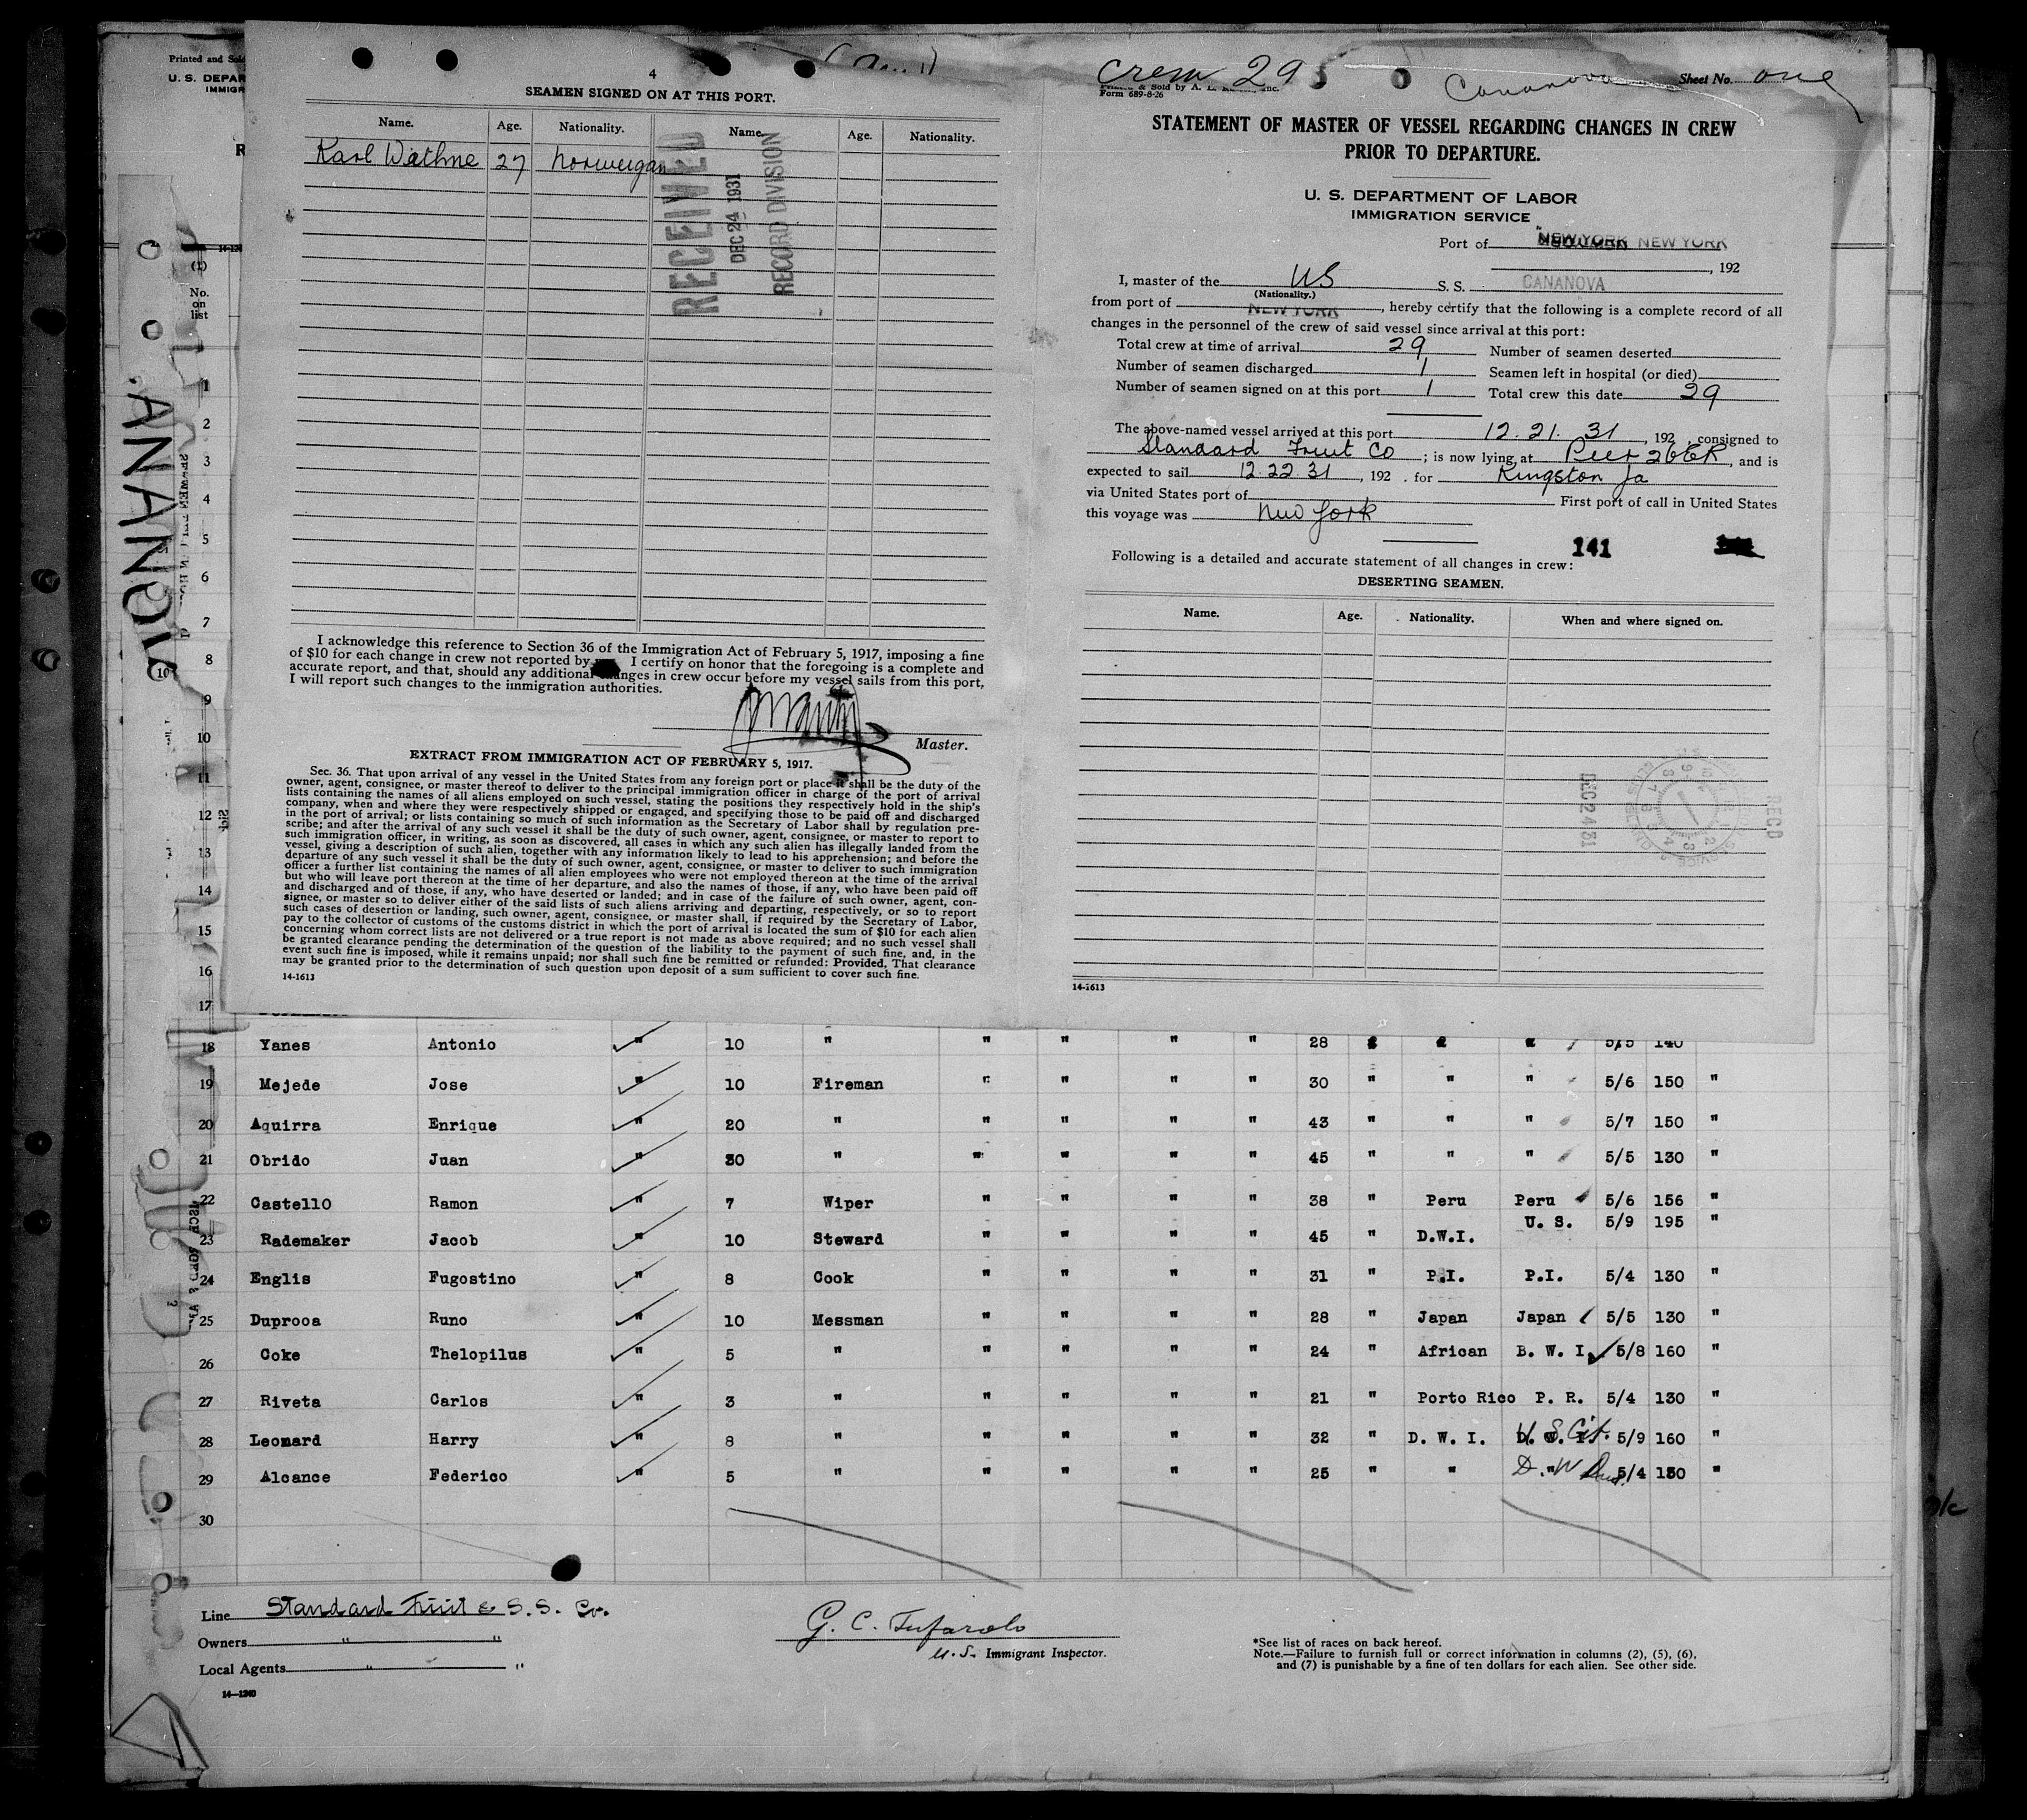 Printed and Sold
U. S. DEPAR
IMMIGR
(1)
No.
on
list
1
2
3
4
5
6
7
8
9
10
11
12
13
14
15
16
17
4
SEAMEN SIGNED ON AT THIS PORT.
Name. Age. Nationality. Name. Age. Nationality.
Karl Wathne 27 Norweigan
RECEIVED
DEC 24 1931
RECORD DIVISION
I acknowledge this reference to Section 36 of the Immigration Act of February 5, 1917, imposing a fine
of $10 for each change in crew not reported by I certify on honor that the foregoing is a complete and
accurate report, and that, should any additional changes in crew occur before my vessel sails from this port,
I will report such changes to the immigration authorities.
Master.
EXTRACT FROM IMMIGRATION ACT OF FEBRUARY 5, 1917.
Sec. 36. That upon arrival of any vessel in the United States from any foreign port or place it shall be the duty of the
owner, agent, consignee, or master thereof to deliver to the principal immigration officer in charge of the port of arrival
lists containing the names of all aliens employed on such vessel, stating the positions they respectively hold in the ship's
company, when and where they were respectively shipped or engaged, and specifying those to be paid off and discharged
in the port of arrival; or lists containing so much of such information as the Secretary of Labor shall by regulation pre-
scribe; and after the arrival of any such vessel it shall be the duty of such owner, agent, consignee, or master to report to
such immigration officer, in writing, as soon as discovered, all cases in which any such alien has illegally landed from the
vessel, giving a description of such alien, together with any information likely to lead to his apprehension; and before the
departure of any such vessel it shall be the duty of such owner, agent, consignee, or master to deliver to such immigration
officer a further list containing the names of all alien employees who were not employed thereon at the time of the arrival
but who will leave port thereon at the time of her departure, and also the names of those, if any, who have been paid off
and discharged and of those, if any, who have deserted or landed; and in case of the failure of such owner, agent, con-
signee, or master so to deliver either of the said lists of such aliens arriving and departing, respectively, or so to report
such cases of desertion or landing, such owner, agent, consignee, or master shall, if required by the Secretary of Labor,
pay to the collector of customs of the customs district in which the port of arrival is located the sum of $10 for each alien
concerning whom correct lists are not delivered or a true report is not made as above required; and no such vessel shall
be granted clearance pending the determination of the question of the liability to the payment of such fine, and, in the
event such fine is imposed, while it remains unpaid; nor shall such fine be remitted or refunded: Provided, That clearance
may be granted prior to the determination of such question upon deposit of a sum sufficient to cover such fine.
14-1613
Crew 29
Cananova Sheet No. one
& Sold by A. L. Inc.
Form 689-8-26
STATEMENT OF MASTER OF VESSEL REGARDING CHANGES IN CREW
PRIOR TO DEPARTURE.
U. S. DEPARTMENT OF LABOR
IMMIGRATION SERVICE
Port of NEW YORK NEW YORK
, 192
I, master of the US S. S. CANANOVA
(Nationality.)
from port of NEW YORK, hereby certify that the following is a complete record of all
changes in the personnel of the crew of said vessel since arrival at this port:
Total crew at time of arrival 29 Number of seamen deserted
Number of seamen discharged 1 Seamen left in hospital (or died)
Number of seamen signed on at this port 1 Total crew this date 29
The above-named vessel arrived at this port 12.21.31, 192 , consigned to
Standard Fruit Co; is now lying at Pier 26ER, and is
expected to sail 12.22.31, 192 . for Kingston Ja
via United States port of First port of call in United States
this voyage was New York
141
Following is a detailed and accurate statement of all changes in crew:
DESERTING SEAMEN.
Name. Age. Nationality. When and where signed on.
DEC 24 31
RECD
14-1613
18 Yanes Antonio " 10 " " " " " 28 " " " 5/5 140
19 Mejede Jose " 10 Fireman " " " " 30 " " " 5/6 150 "
20 Aquirra Enrique " 20 " " " " " 43 " " " 5/7 150 "
21 Obrido Juan " 30 " " " " " 45 " " " 5/5 130 "
22 Castello Ramon " 7 Wiper " " " " 38 " Peru Peru 5/6 156 "
23 Rademaker Jacob " 10 Steward " " " " 45 " D.W.I. U. S. 5/9 195 "
24 Englis Fugostino " 8 Cook " " " " 31 " P.I. P.I. 5/4 130 "
25 Duprooa Runo " 10 Messman " " " " 28 " Japan Japan 5/5 130 "
26 Coke Thelopilus " 5 " " " " " 24 " African B. W. I. 5/8 160 "
27 Riveta Carlos " 3 " " " " " 21 " Porto Rico P. R. 5/4 130 "
28 Leonard Harry " 8 " " " " " 32 " D. W. I. D. W. I. U S Cit. 5/9 160 "
29 Alcance Federico " 5 " " " " " 25 " " " D. W 5/4 130 "
30
Line Standard Fruit & S.S. Co.
Owners " "
Local Agents " "
14—1240
G. C. Tufarolo
U.S. Immigrant Inspector.
*See list of races on back hereof.
Note.—Failure to furnish full or correct information in columns (2), (5), (6),
and (7) is punishable by a fine of ten dollars for each alien. See other side.